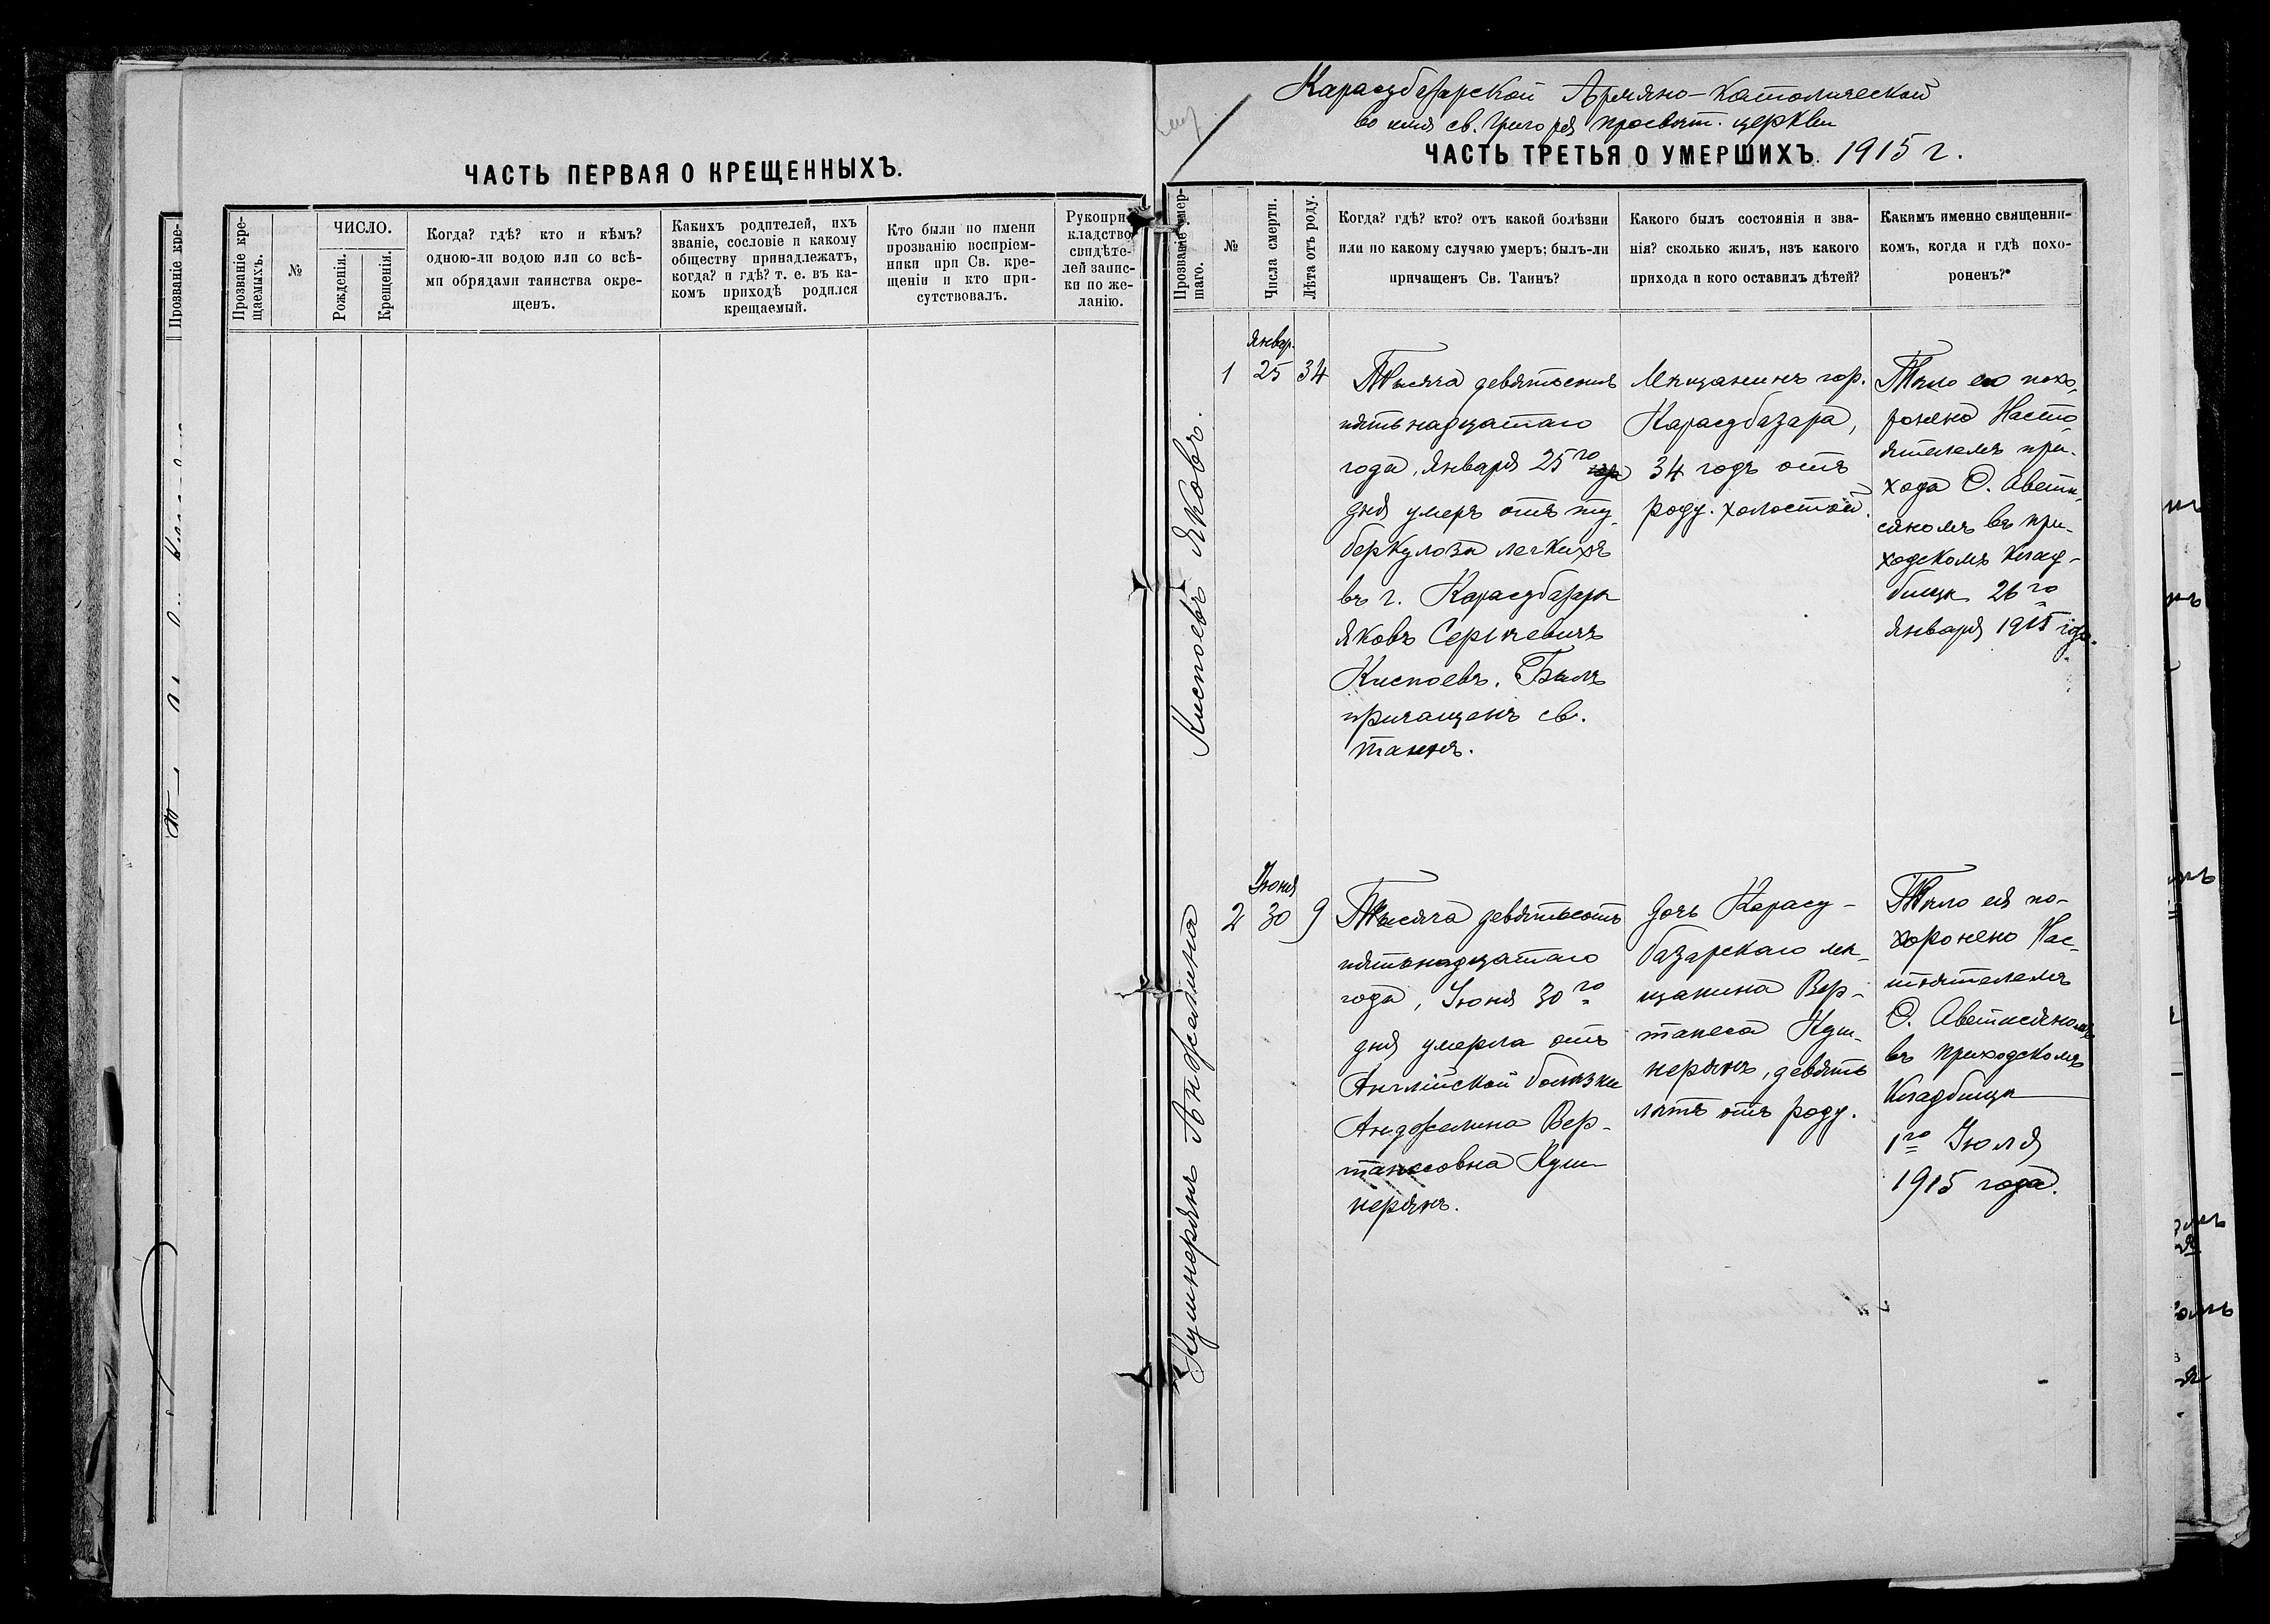 ЧАСТЬ ПЕРВАЯ О КРЕЩЕННЫХЪ.
Прозваніе кре-
Прозваніе кре-
щаемыхъ.
№
ЧИСЛО.
Рожденія.
Крещенія.
Когда? гдѣ? кто и кѣмъ?
одною-ли водою или со всѣ-
ми обрядами таинства окре-
щенъ.
Какихъ родителей, ихъ
званіе, сословіе и какому
обществу принадлежатъ,
когда? и гдѣ? т. е. въ ка-
комъ приходѣ родился
крещаемый.
Кто были по имени
прозванію воспріем-
ники при Св. кре-
щеніи и кто при-
сутствовалъ.
Рукопри-
кладство
свидѣте-
лей запис-
ки по же-
ланію.
Карасубазарской Армяно-Католической
во имя св. Григорія просвѣт. церкви
ЧАСТЬ ТРЕТЬЯ О УМЕРШИХЪ. 1915 г.
Прозваніе умер-
шаго.
№
Числа смерти.
Лѣта отъ роду.
Когда? гдѣ? кто? отъ какой болѣзни
или по какому случаю умеръ; былъ-ли
причащенъ Св. Таинъ?
Какого былъ состоянія и зва-
нія? сколько жилъ, изъ какого
прихода и кого оставилъ дѣтей?
Какимъ именно священни-
комъ, когда и гдѣ похо-
роненъ?
Киспоевъ Яковъ.
1
Январ.
25
34
Тысяча девятьсотъ
пятьнадцатаго
года, Января 25го
дня умеръ отъ ту-
беркулоза легкихъ
въ г. Карасубазарѣ
Яковъ Сергѣевичъ
Киспоевъ. Былъ
причащенъ св.
таинъ.
Мѣщанинъ гор.
Карасубазара,
34 годъ отъ
роду. холостой.
Тѣло его похо-
ронено Насто-
ятелемъ при-
хода О. Авети-
сяномъ въ при-
ходскомъ клад-
бищѣ 26го
января 1915 года.
Кушнерянъ Анжелина
2
Іюня
30
9
Тысяча девятьсотъ
пятьнадцатаго
года, Іюня 30го
дня умерла отъ
Англійской болѣзни
Анджелина Вер-
танесовна Куш-
нерянъ.
дочь Карасу-
базарскаго мѣ-
щанина Вер-
танеса Куш-
нерянъ, девять
лѣтъ отъ роду.
Тѣло ея по-
хоронено Нас-
тоятелемъ
О. Аветисяномъ
въ приходскомъ
Кладбищѣ
1го Іюля
1915 года.